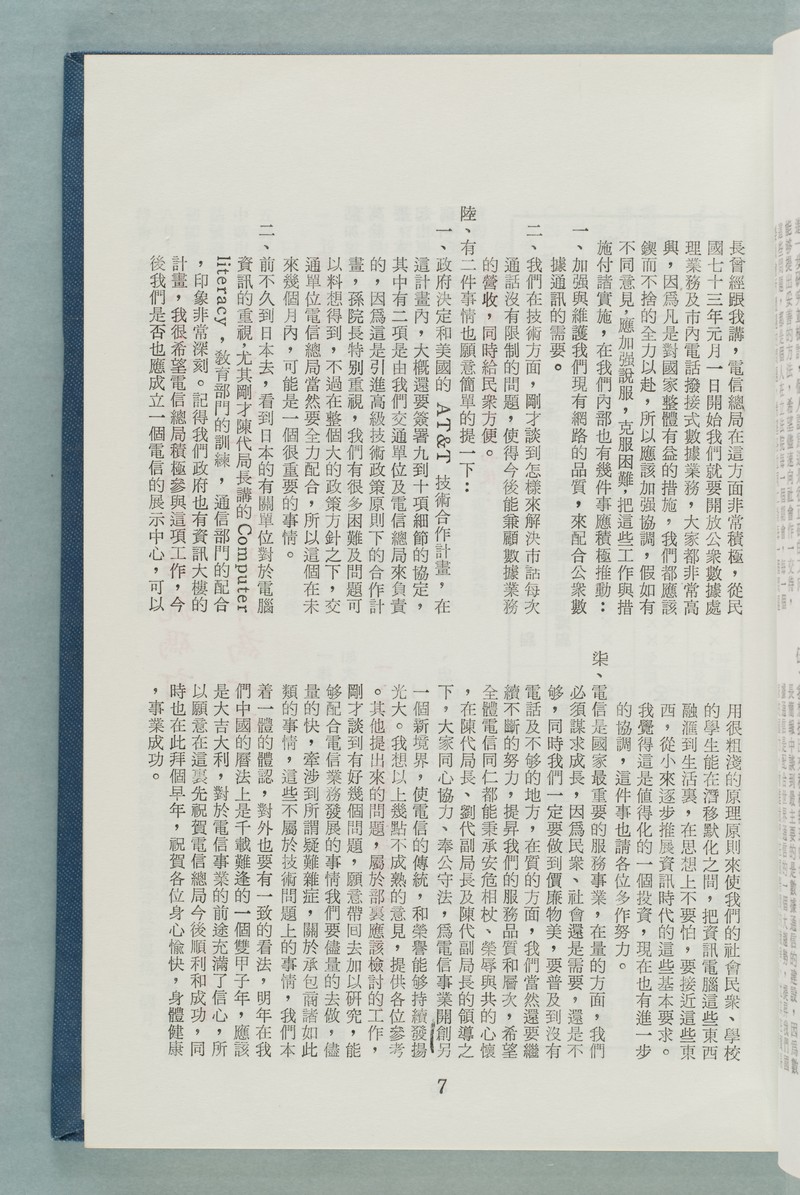 長曾經跟我講，電信總局在這方面非常積極，從民
國七十三年元月一日開始我們就要開放公衆數據處
理業務及市內電話撥接式數據業務，大家都非常高
興，因爲凡是對國家整體有益的措施，我們都應該
鍥而不捨的全力以赴，所以應該加强協調，假如有
不同意見，應加强說服，克服困難，把這些工作與措
施付諸實施，在我們內部也有幾件事應積極推動：
一、加强與維護我們現有網路的品質，來配合公衆數
據通訊的需要。
二、我們在技術方面，剛才談到怎樣來解決市話每次
通話沒有限制的問題，使得今後能兼顧數據業務
的營收，同時給民衆方便。
陸、有二件事情也願意簡單的提一下：
一、政府決定和美國的 AT&T 技術合作計畫，在
這計畫內，大概還要簽署九到十項細節的協定，
其中有二項是由我們交通單位及電信總局來負責
的，因爲這是引進高級技術政策原則下的合作計
畫，孫院長特別重視，我們有很多困難及問題可
以料想得到，不過在整個大的政策方針之下，交
通單位電信總局當然要全力配合，所以這個在未
來幾個月內，可能是一個很重要的事情。
二、前不久到日本去，看到日本的有關單位對於電腦
資訊的重視，尤其剛才陳代局長講的Computer
literacy，敎育部門的訓練，通信部門的配合
，印象非常深刻。記得我們政府也有資訊大樓的
計畫，我很希望電信總局積極參與這項工作，今
後我們是否也應成立一個電信的展示中心，可以
用很粗淺的原理原則來使我們的社會民衆、學校
的學生能在潛移默化之間，把資訊電腦這些東西
融滙到生活裏，在思想上不要怕，要接近這些東
西，從小來逐步推展資訊時代的這些基本要求。
我覺得這是值得化的一個投資，現在也有進一步
的協調，這件事也請各位多作努力。
柒、電信是國家最重要的服務事業，在量的方面，我們
必須謀求成長，因爲民衆、社會還是需要，還是不
够，同時我們一定要做到價廉物美，要普及到沒有
電話及不够的地方，在質的方面，我們當然還要繼
續不斷的努力，提昇我們的服務品質和層次，希望
全體電信同仁都能秉承安危相杖、榮辱與共的心懷
，在陳代局長、劉代副局長及陳代副局長的領導之
下，大家同心協力、奉公守法，爲電信事業開創另
一個新境界，使電信的傳統，和榮譽能够持續發揚
光大。我想以上幾點不成熟的意見，提供各位參考
。其他提出來的問題，屬於部裏應該檢討的工作，
剛才談到有好幾個問題，願意帶回去加以硏究，能
够配合電信業務發展的事情我們要儘量的去做，儘
量的快，牽涉到所謂疑難雜症，關於承包商諸如此
類的事情，這些不屬於技術問題上的事情，我們本
着一體的體認，對外也要有一致的看法，明年在我
們中國的曆法上是千載難逢的一個雙甲子年，應該
是大吉大利，對於電信事業的前途充滿了信心，所
以願意在這裏先祝賀電信總局今後順利和成功，同
時也在此拜個早年，祝賀各位身心愉快，身體健康
，事業成功。
7